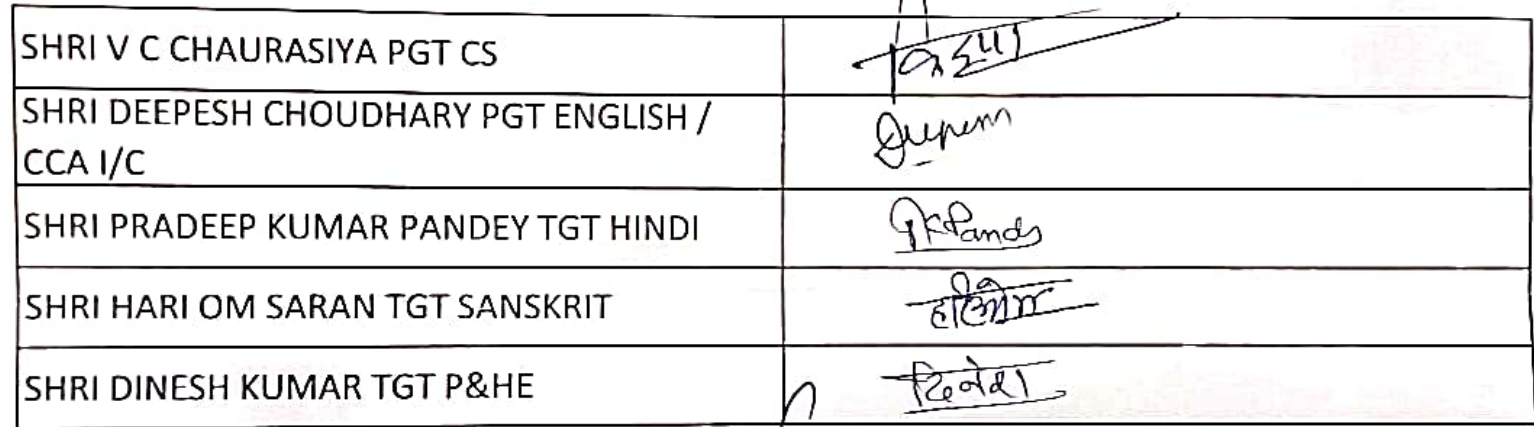 SHRI V C CHAURASIYA PGT CS
SHRI DEEPESH CHOUDHARY PGT ENGLISH /
CCA I/C
SHRI PRADEEP KUMAR PANDEY TGT HINDI PKPandey
SHRI HARI OM SARAN TGT SANSKRIT हरिओम
SHRI DINESH KUMAR TGT P&HE दिनेश